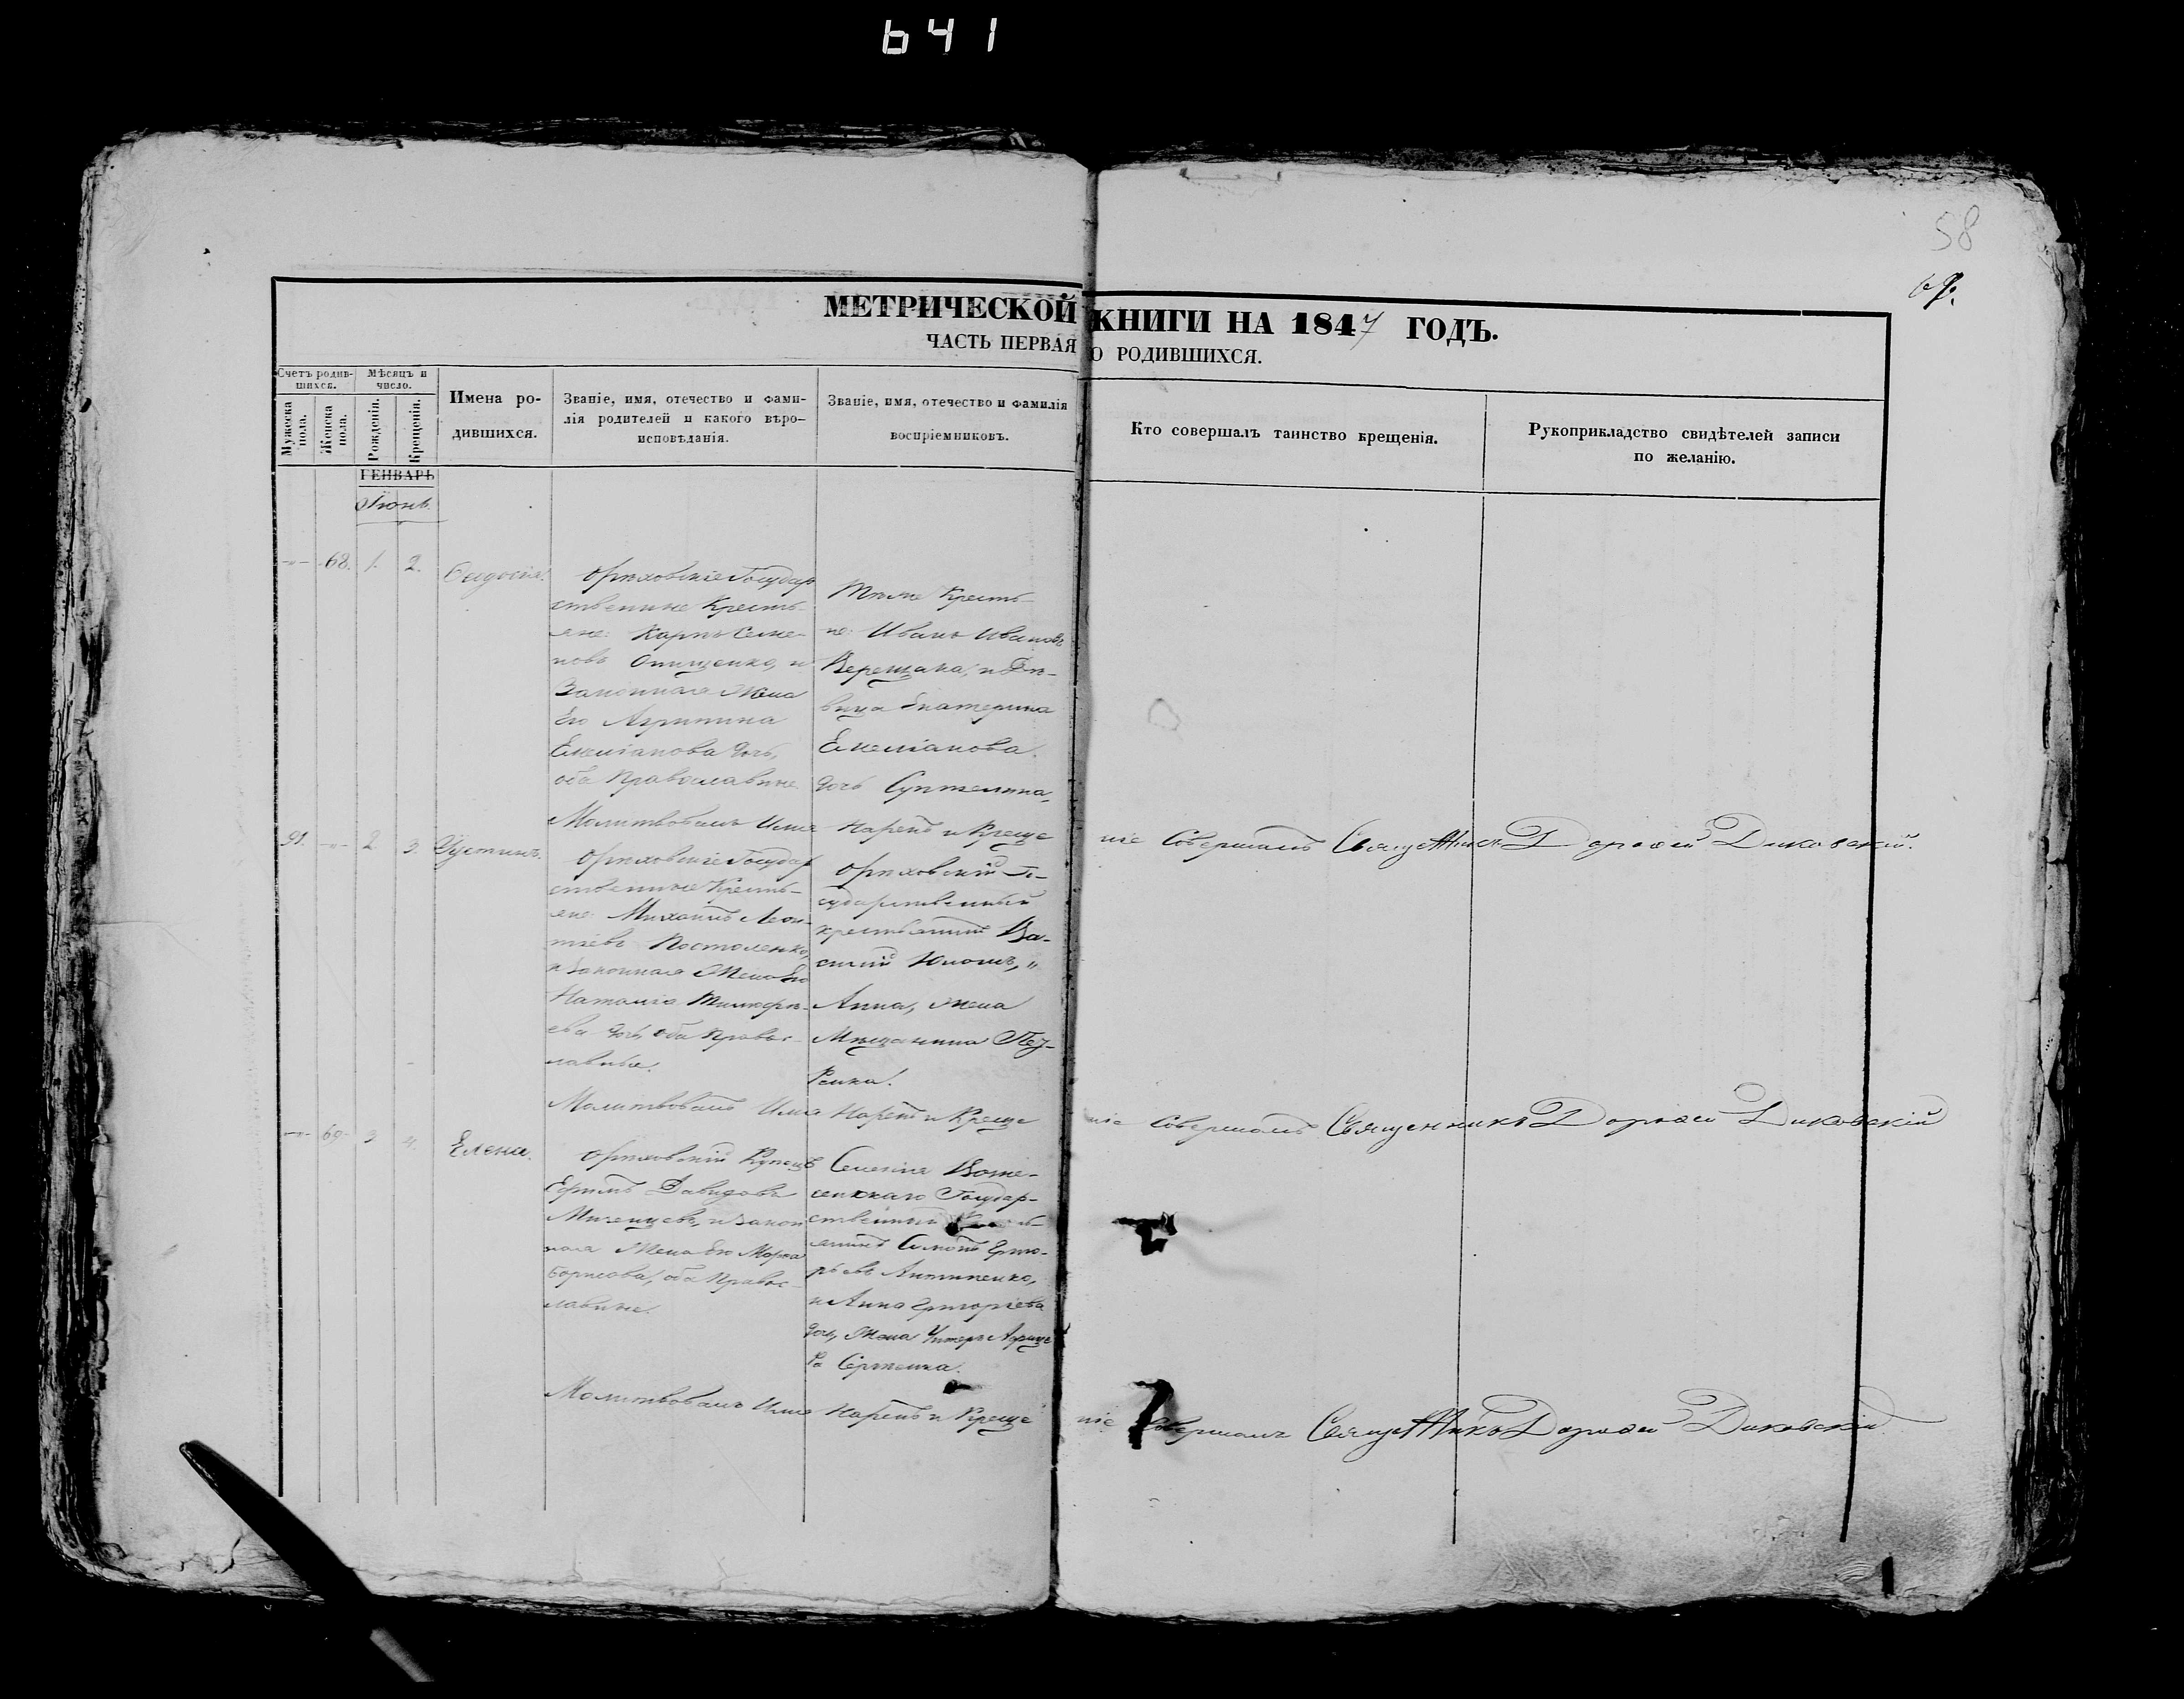 641
58
69.
МЕТРИЧЕСКОЙ КНИГИ НА 1847 ГОДЪ.
ЧАСТЬ ПЕРВАЯ О РОДИВШИХСЯ.
Счетъ родившихся.
Мужеска пола.
Женска пола.
Мѣсяцъ и число.
Рожденія.
Крещенія.
Имена родившихся.
Званіе, имя, отечество и фамилія родителей и какого вѣроисповѣданія.
Званіе, имя, отечество и фамилія воспріемниковъ.
Кто совершалъ таинство крещенія.
Рукоприкладство свидѣтелей записи по желанію.
ГЕНВАРЬ
Іюнь.
-"- 68. 1. 2. Ѳеодосія.
Орѣховскіе Государ
ственные Кресть-
яне: Карпъ Семе-
новъ Онищенко, и
Законная Жена
Его Агрипина
Емеліанова дочь,
оба Православные
Тѣже Кресть-
не: Иванъ Ивановъ
Верещака, и Дѣ-
вица Екатерина
Емеліанова
дочь
Молитвовалъ Имя Нарекъ и Креще ніе Совершалъ Священникъ Дороѳей Диковскій.
91. -"- 2 3. Іустинъ.
Орѣховскіе Государ
ственные Кресть-
яне: Михаилъ Леон-
тіевъ Постоленко,
и Законная Жена Его
Наталія Тимофѣ-
ева дочь, оба Правос-
лавные.
Орѣховскій Го-
сударственный
крестьянинъ Ва-
силій
Анна, Жена
Мѣщанина
Молитвовалъ Имя Нарекъ и Креще ніе Совершалъ Священникъ Дороѳей Диковскій
-"- 69. 3 4. Елена.
Орѣховскій Купецъ
Ефимъ Давидовъ
и Закон
ная Жена Его Марѳа
Борисова, оба Правос-
лавные.
Селенія Возне-
сенскаго Государ-
ственный
янинъ Симонъ Григо-
рьевъ Антипенко,
и Анна Григоріева
дочь, Жена
Молитвовалъ Имя Нарекъ и Креще ніе Совершалъ Священникъ Дороѳей Диковскій